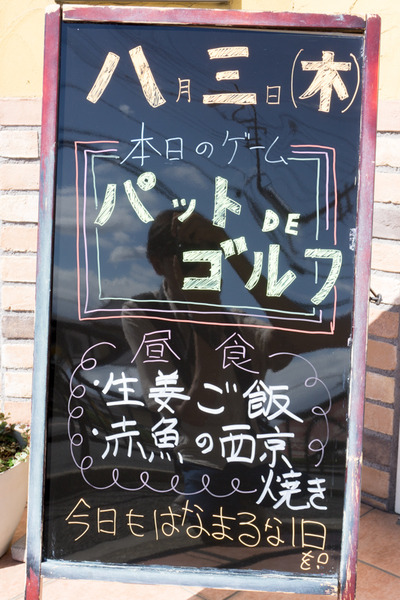 八月三日(木)
本日のゲーム
パットDE
ゴルフ
昼食
・生姜ご飯
・赤魚の西京
焼き
今日もはなまるな1日
を。